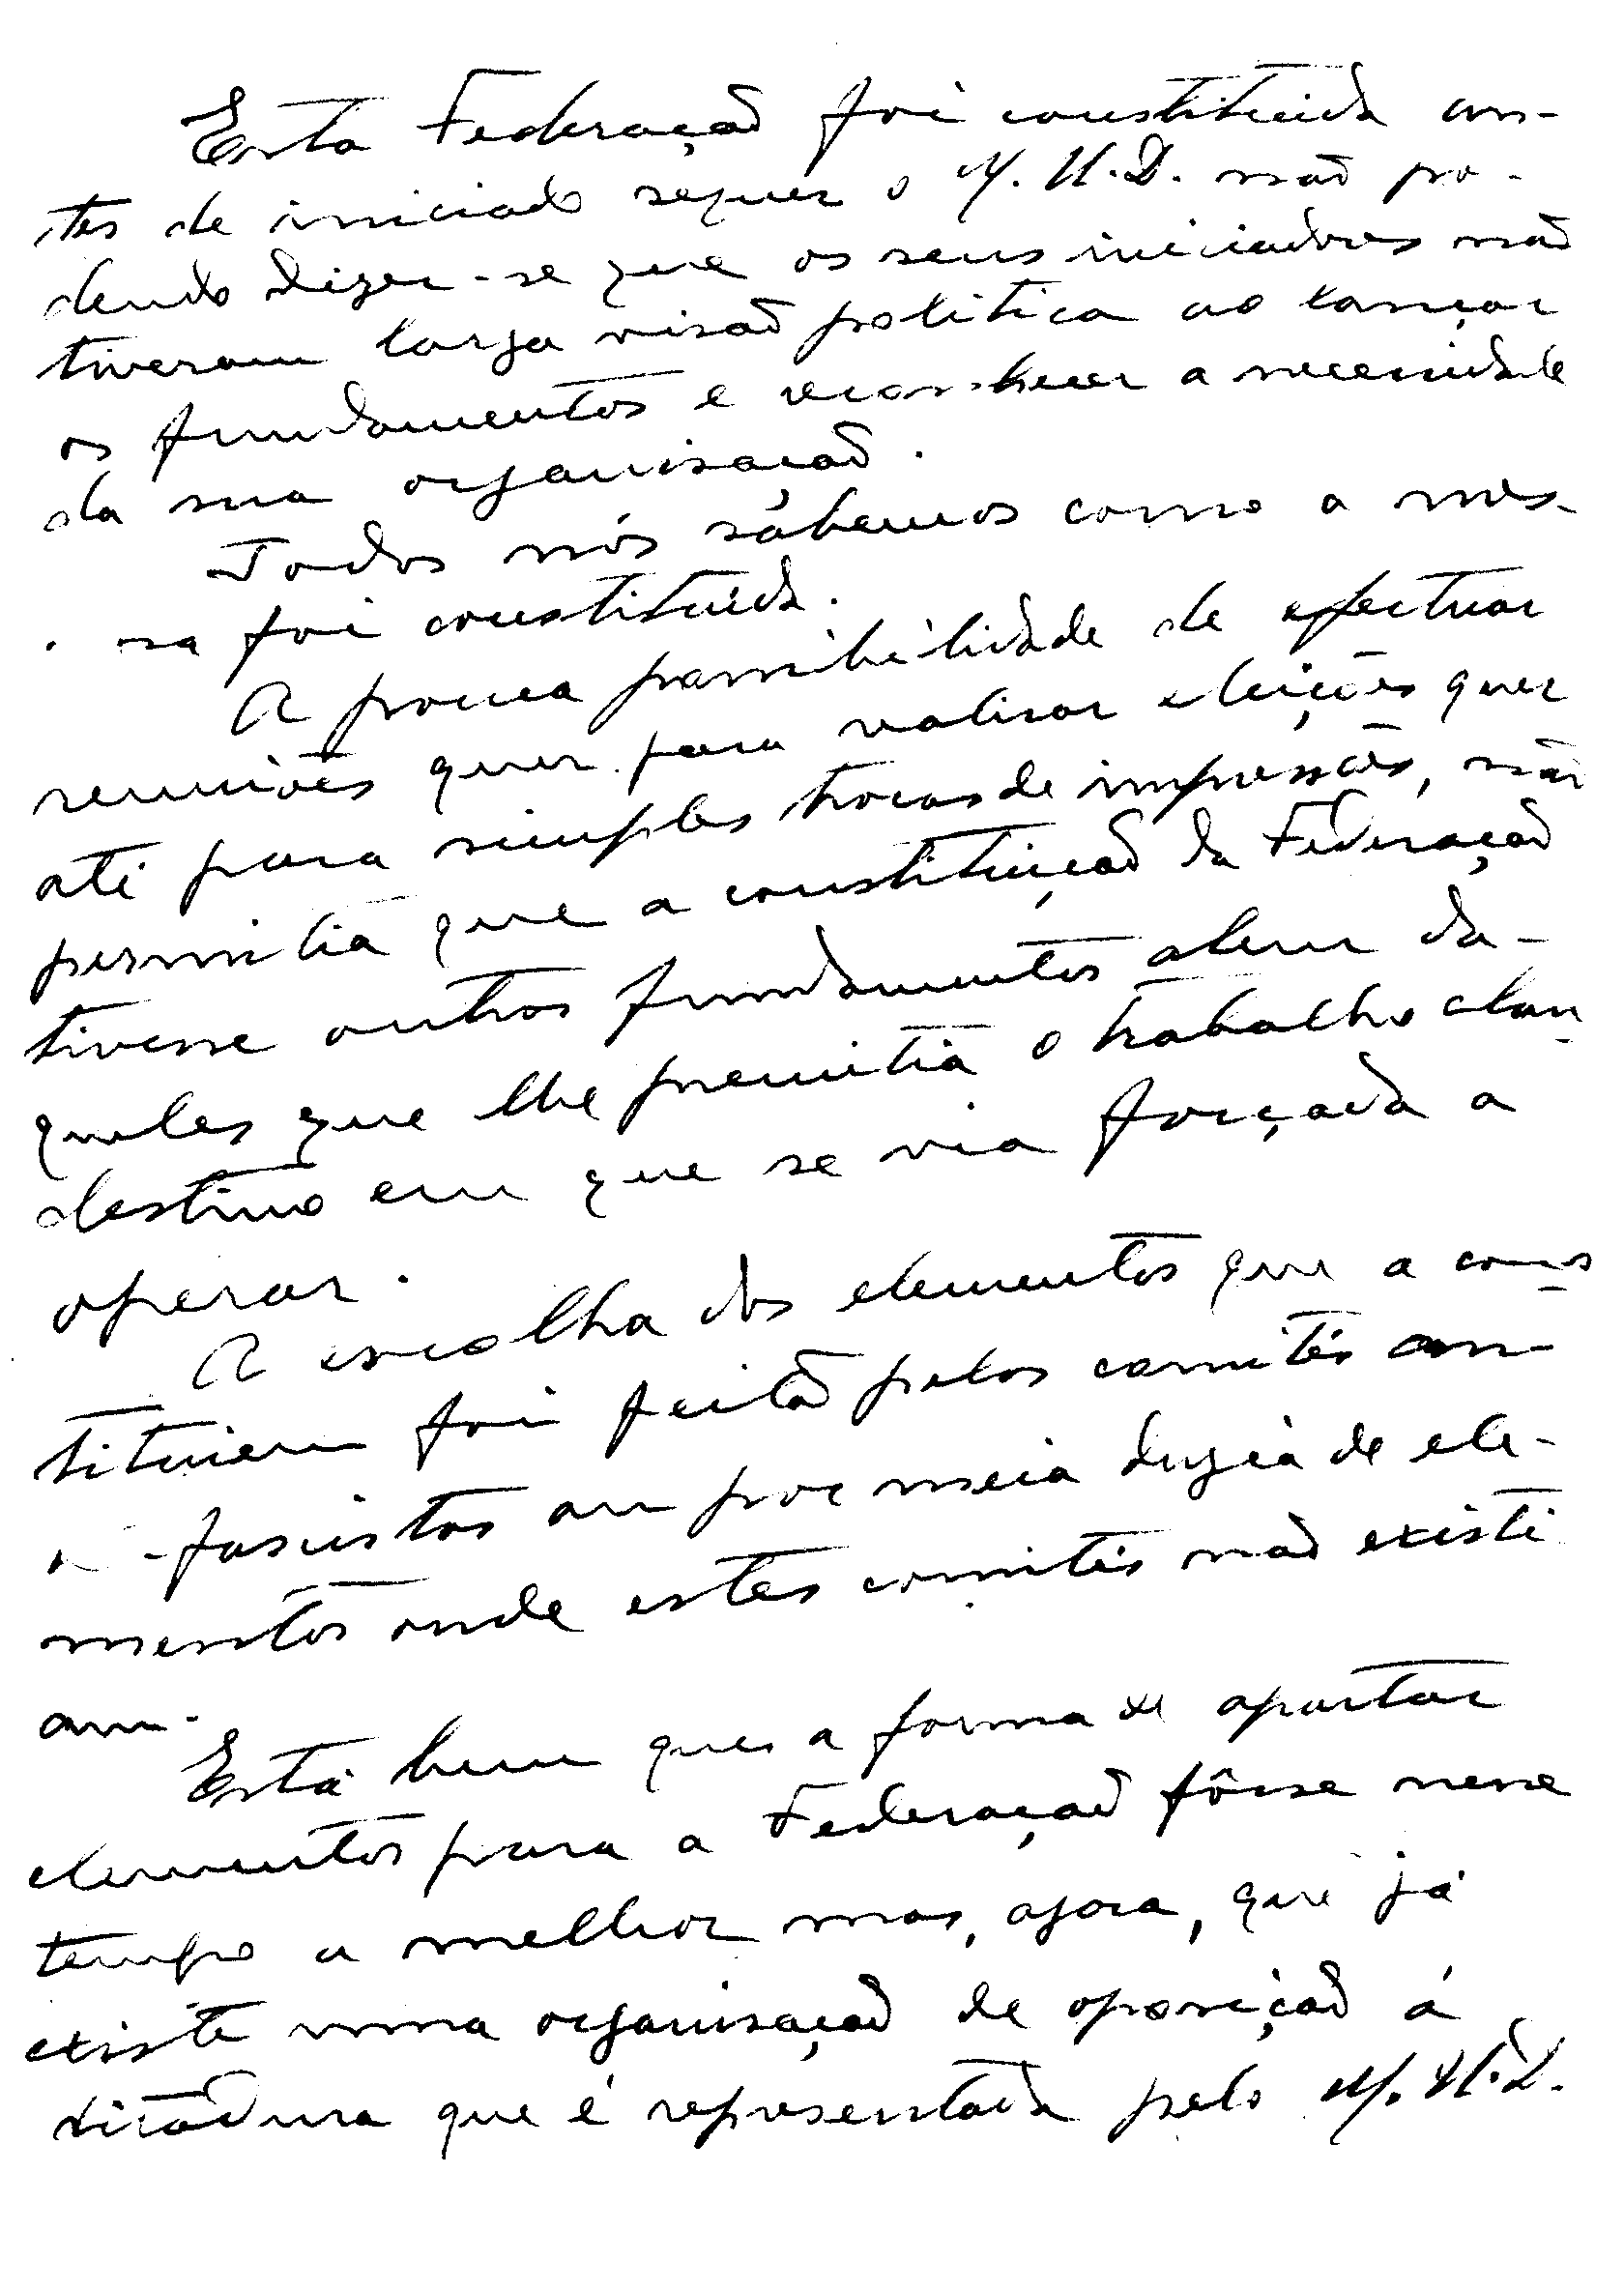 Esta Federação foi constituida an-
tes de iniciado sequer o M.U.D. não po-
dendo dizer-se que os seus iniciadores não
tiveram larga visão politica ao lançar
os fundamentos e reconhecer a necessidade
da sua organisação.
Todos nós sábemos como a mes-
ma foi constituída.
A pouca possibilidade de efectuar
reuniões quer para realisar eleições quer
até para simples trocas de impressões, não
permitia que a constituição da Federação
tivesse outros fundamentos alem da-
queles que lhe premitia o trabalho clan-
destino em que se via forçada a
operar.
A escolha dos elementos que a cons-
tituiem foi feita pelos comités an-
ti-fascistas ou por meia duzia de ele-
mentos onde estes comités não existi
am.
Está bem que a forma de aportar
elementos para a Federação fôsse nesse
tempo a melhor mas, agora, que já
existe uma organisação de oposição á
ditadura que é representada pelo M.U.D.